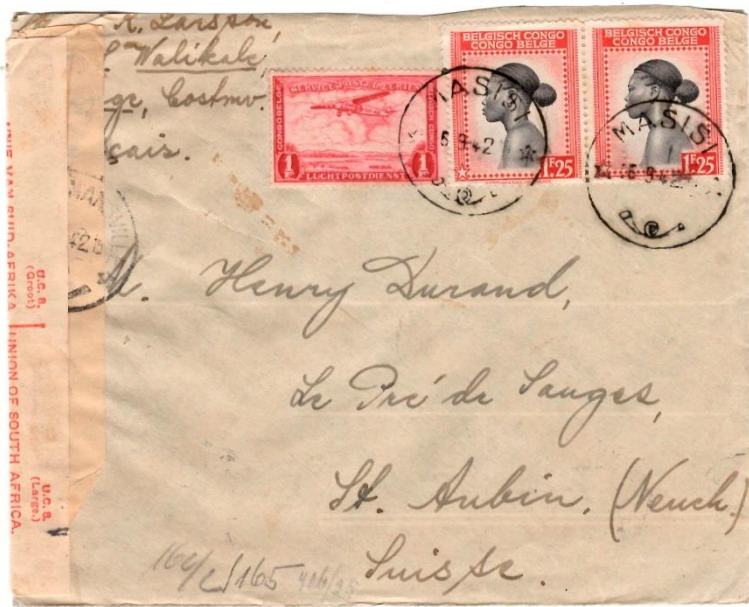 K. Larsson,
Walikale
Costmv.
çais.
SERVICE POSTAL AERIEN
CONGO BELGE
BELGISCH CONGO
1F
1F
LUCHTPOSTDIENST
BELGISCH CONGO
CONGO BELGE
1F.25
BELGISCH CONGO
CONGO BELGE
1F.25
MASISI
5-9-42
MASISI
5-9-42
U.C.8.
(Groot)
UNIE VAN SUID-AFRIKA
UNION OF SOUTH AFRICA.
U.C.8.
(Large.)
M. Henry Durand,
Le Pré de Sauges,
St. Aubin. (Neuch.)
Suisse.
165